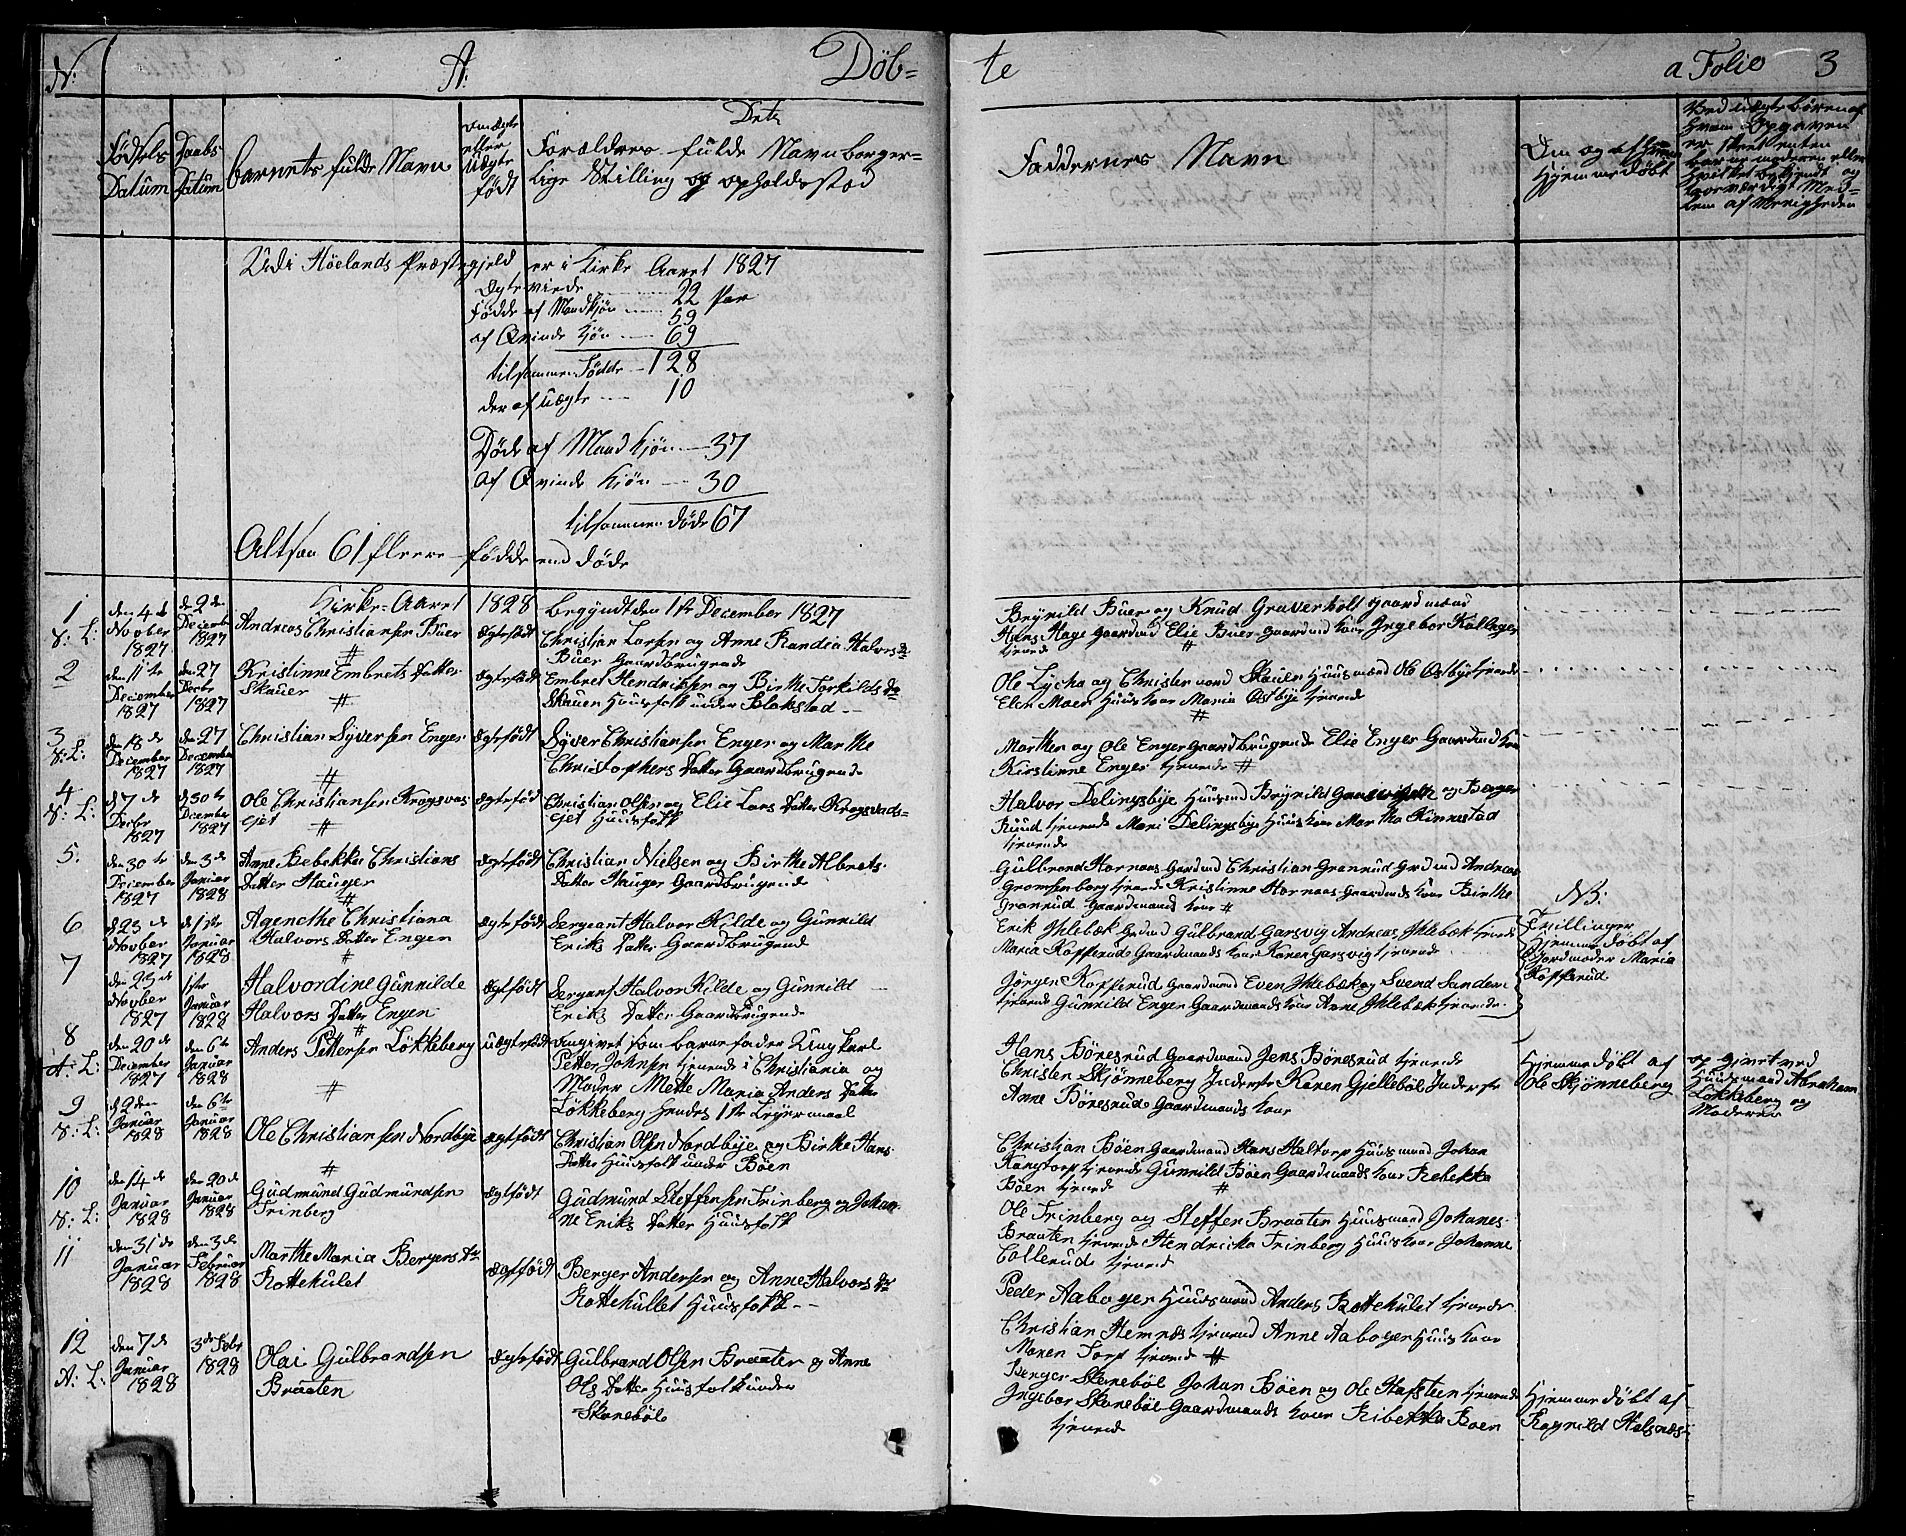 N: A: Döb= te a Folio 3
Fødsels Datum
Daabs Datum
Barnets fulde Navn
om ægte eller Uægte født
Dets Forældres fulde Navn borger-
lige Stilling og opholdsstæd
Faddernes Navn
Udi Höelands Præstegjeld er i Kirke Aaret 1827
Ægteviede 22 Par
Fødde af Mandkjön 59
af Qvinde Kjön 69
tilsammen Födde 128
der af uægte 10
Døde af Mand Kjön 37
af Qvinde Kjön 30
tilsammen døde 67
Altsaa 61 fleere fødde end døde
Kirke-Aaret 1828 begyndt den 1ste December 1827
1 den 4de Novber 1827
den 2den December 1827
Andreas Christiansen Buer
ægtefödt
Christian Larsen og Anne Randia Halvors Dr
Buer Gaardbrugende
Brynild Buer og Knud Graverholt gaardmænd
Hans Hage Gaardmd Elie Buer Gaardmd kone Ingebor Kollager
tjenende #
2 den 11te December 1827
den 27 Decbr 1827
Kristinne Embrets Datter
Skauer #
ægtefödt
Embret Hendriksen og Birthe Torkilds Dr
Skauen Huusfolk under Blakstad
Ole Lycka og Christen Skauen Huusmænd Ole Ostbye tjenende
Elen Moen Huuskone Maria Ostbye tjenende
#
3 V: L: den 18de December 1827
den 27 December 1827
Christian Syversen Enger
#
ægtefödt
Syver Christiansen Enger og Marthe
Christophers Datter Gaardbrugende
Marthen og Ole Enger Gaardbrugende Elie Enger Gaardmd kone
Kirstinne Enger tjenende #
4 V: L: d 7de Decbr 1827
d 30te December 1827
Ole Christiansen Krogsvas
ejet #
ægtefödt
Christian Olsen og Elie Lars Datter Krogsvads-
ejet Huusfolk
Halvor Delingsbye Huusmd Brynild og Berger
Ruud tjenende Mari Delingsbye Huuskone Martha Kinnestad
tjenende
5. den 30te December 1827
den 3de Januar 1828
Anne Rebekka Christians
Datter Hauger
#
ægtefödt
Christian Nielsen og Birthe Albrets-
Datter Hauger Gaardbrugende
Gulbrand Hornaas Gaardmd Christian Granrud Grdmd Andreas
Gromsenborg tjenende Kristinne Hornaas Gaardmands kone Birthe
Granrud Gaardmands kone #
6 d 23de Novber 1827
d 1ste Januar 1828
Agenethe Christiana
Halvors Datter Engen
#
ægtefödt
Sergeant Halvor Kilde og Gunnild
Eriks Datter Gaardbrugend
Erik Ihlebæk Grdmd Gulbrand Garsvig Andreas Ihlebæk tjenende
Maria Kofferud Gaardmands kone Karen Garsvig tjenende
NB:
Trillinger
hjemme döbt af
Jordmoder Maria
Kofferud
7 den 23de Novber 1827
1ste Januar 1828
Halvordine Gunnilde
Halvors Datter Engen
#
ægtfödt
Sergeant Halvor Kilde og Gunnild
Eriks Datter Gaardbrugende
Jörgen Kofferud Gaardmand Even Ihlebæk og Svend Sanden
tjenende Gunnild Enger Gaardmands kone Anne Ihlebæk tjenende
8 A: L: den 20de December 1827
den 6te Januar 1828
Anders Pettersen Løkkeberg
#
uægtefödt
Angivet som barnefader Ungkarl
Petter Johnsen tjenende i Christiania og
Moder Mette Maria Anders Datter
Løkkeberg hendes 1ste Leiermaal
Hans Bönesrud Gaardmand Jens Bönesrud tjenende
Christen Skjönneberg Inderste Karen Gjellebøl Inderste
Anne Bönesrud Gaardmands kone
Hjemmedöbt af
Ole Skjønneberg
opgivet ved
Huusmand Abraham
Løkkeberg og
Moderen
9 V: L: d 2den Januar 1828
den 6te Januar 1828
Ole Christiansen Nordbye
#
ægtfödt
Christian Olsen Nordbye og Birthe Hans-
Datter Huusfolk under Böen
Christian Böen Gaardmand Hans Haltorp Huusmand Johan
Rangtorp tjenende Gunnild Böen Gaardmands kone Rebekka
Böen tjenende #
10 V: L: den 14de Januar 1828
den 20de Januar 1828
Gudmund Gudmundsen
Trinberg
ægtfödt
Gudmund Steffensen Trinberg og Johan-
ne Eriks Datter Huusfolk
Ole Trinberg og Steffen Braaten Huusmænd Johanes-
Braaten tjenende Hendricka Trinberg Huuskone Johanne
Collerud tjenende
11 den 31de Januar 1828
den 3de Februar 1828
Marthe Maria Bergers Dr
Rottehulet
ægtfödt
Berger Andersen og Anne Halvors Dr
Rottehullet Huusfolk
Peder Aaboger Huusmand Anders Rottehulet tjenende
Christian Hemnæs tjenende Anne Aaboger Huuskone
Maren Torp tjenende #
12 A: L: den 7de Januar 1828
3de Febr 1828
Olai Gulbrandsen
Braaten
ægtefödt
Gulbrand Olsen Braaten og Anne
Ols Datter Huusfolk under
Skanebøl
Berger Skanebøl Johan Böen og Ole Hafsteen tjenende
Ingebor Skanebøl Gaardmands kone Ribekka Boen
tjenende
Hjemmedöbt af
Ragnild Halsnæs